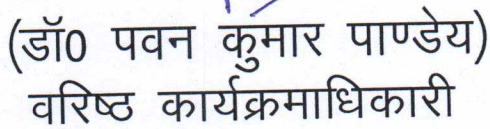 (डॉ0 पवन कुमार पाण्डेय)
वरिष्ठ कार्यक्रमाधिकारी